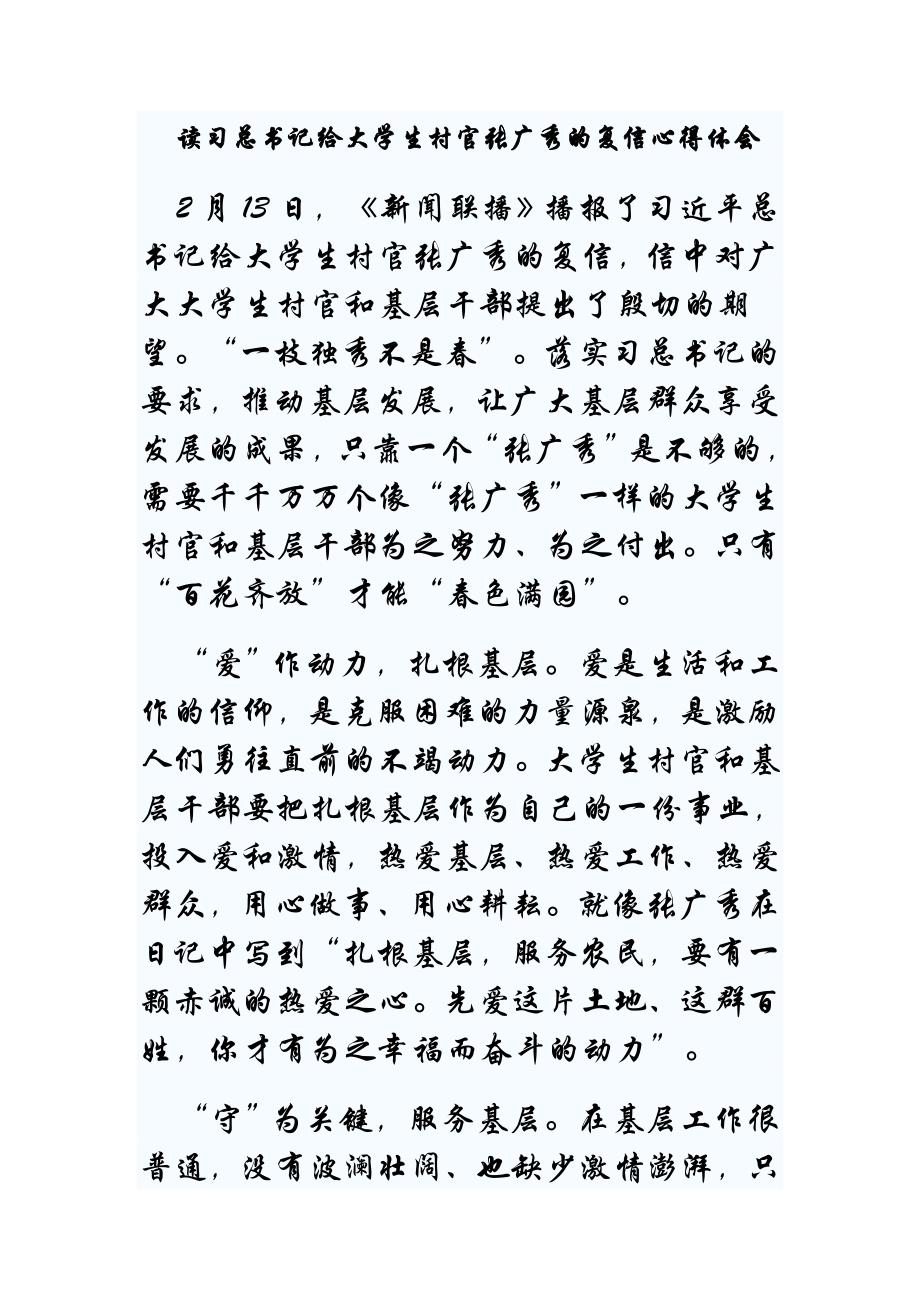 读习总书记给大学生村官张广秀的复信心得体会
2月13日，《新闻联播》播报了习近平总
书记给大学生村官张广秀的复信，信中对广
大大学生村官和基层干部提出了殷切的期
望。“一枝独秀不是春”。落实习总书记的
要求，推动基层发展，让广大基层群众享受
发展的成果，只靠一个“张广秀”是不够的，
需要千千万万个像“张广秀”一样的大学生
村官和基层干部为之努力、为之付出。只有
“百花齐放”才能“春色满园”。
“爱”作动力，扎根基层。爱是生活和工
作的信仰，是克服困难的力量源泉，是激励
人们勇往直前的不竭动力。大学生村官和基
层干部要把扎根基层作为自己的一份事业，
投入爱和激情，热爱基层、热爱工作、热爱
群众，用心做事、用心耕耘。就像张广秀在
日记中写到“扎根基层，服务农民，要有一
颗赤诚的热爱之心。先爱这片土地、这群百
姓，你才有为之幸福而奋斗的动力”。
“守”为关键，服务基层。在基层工作很
普通，没有波澜壮阔、也缺少激情澎湃，只